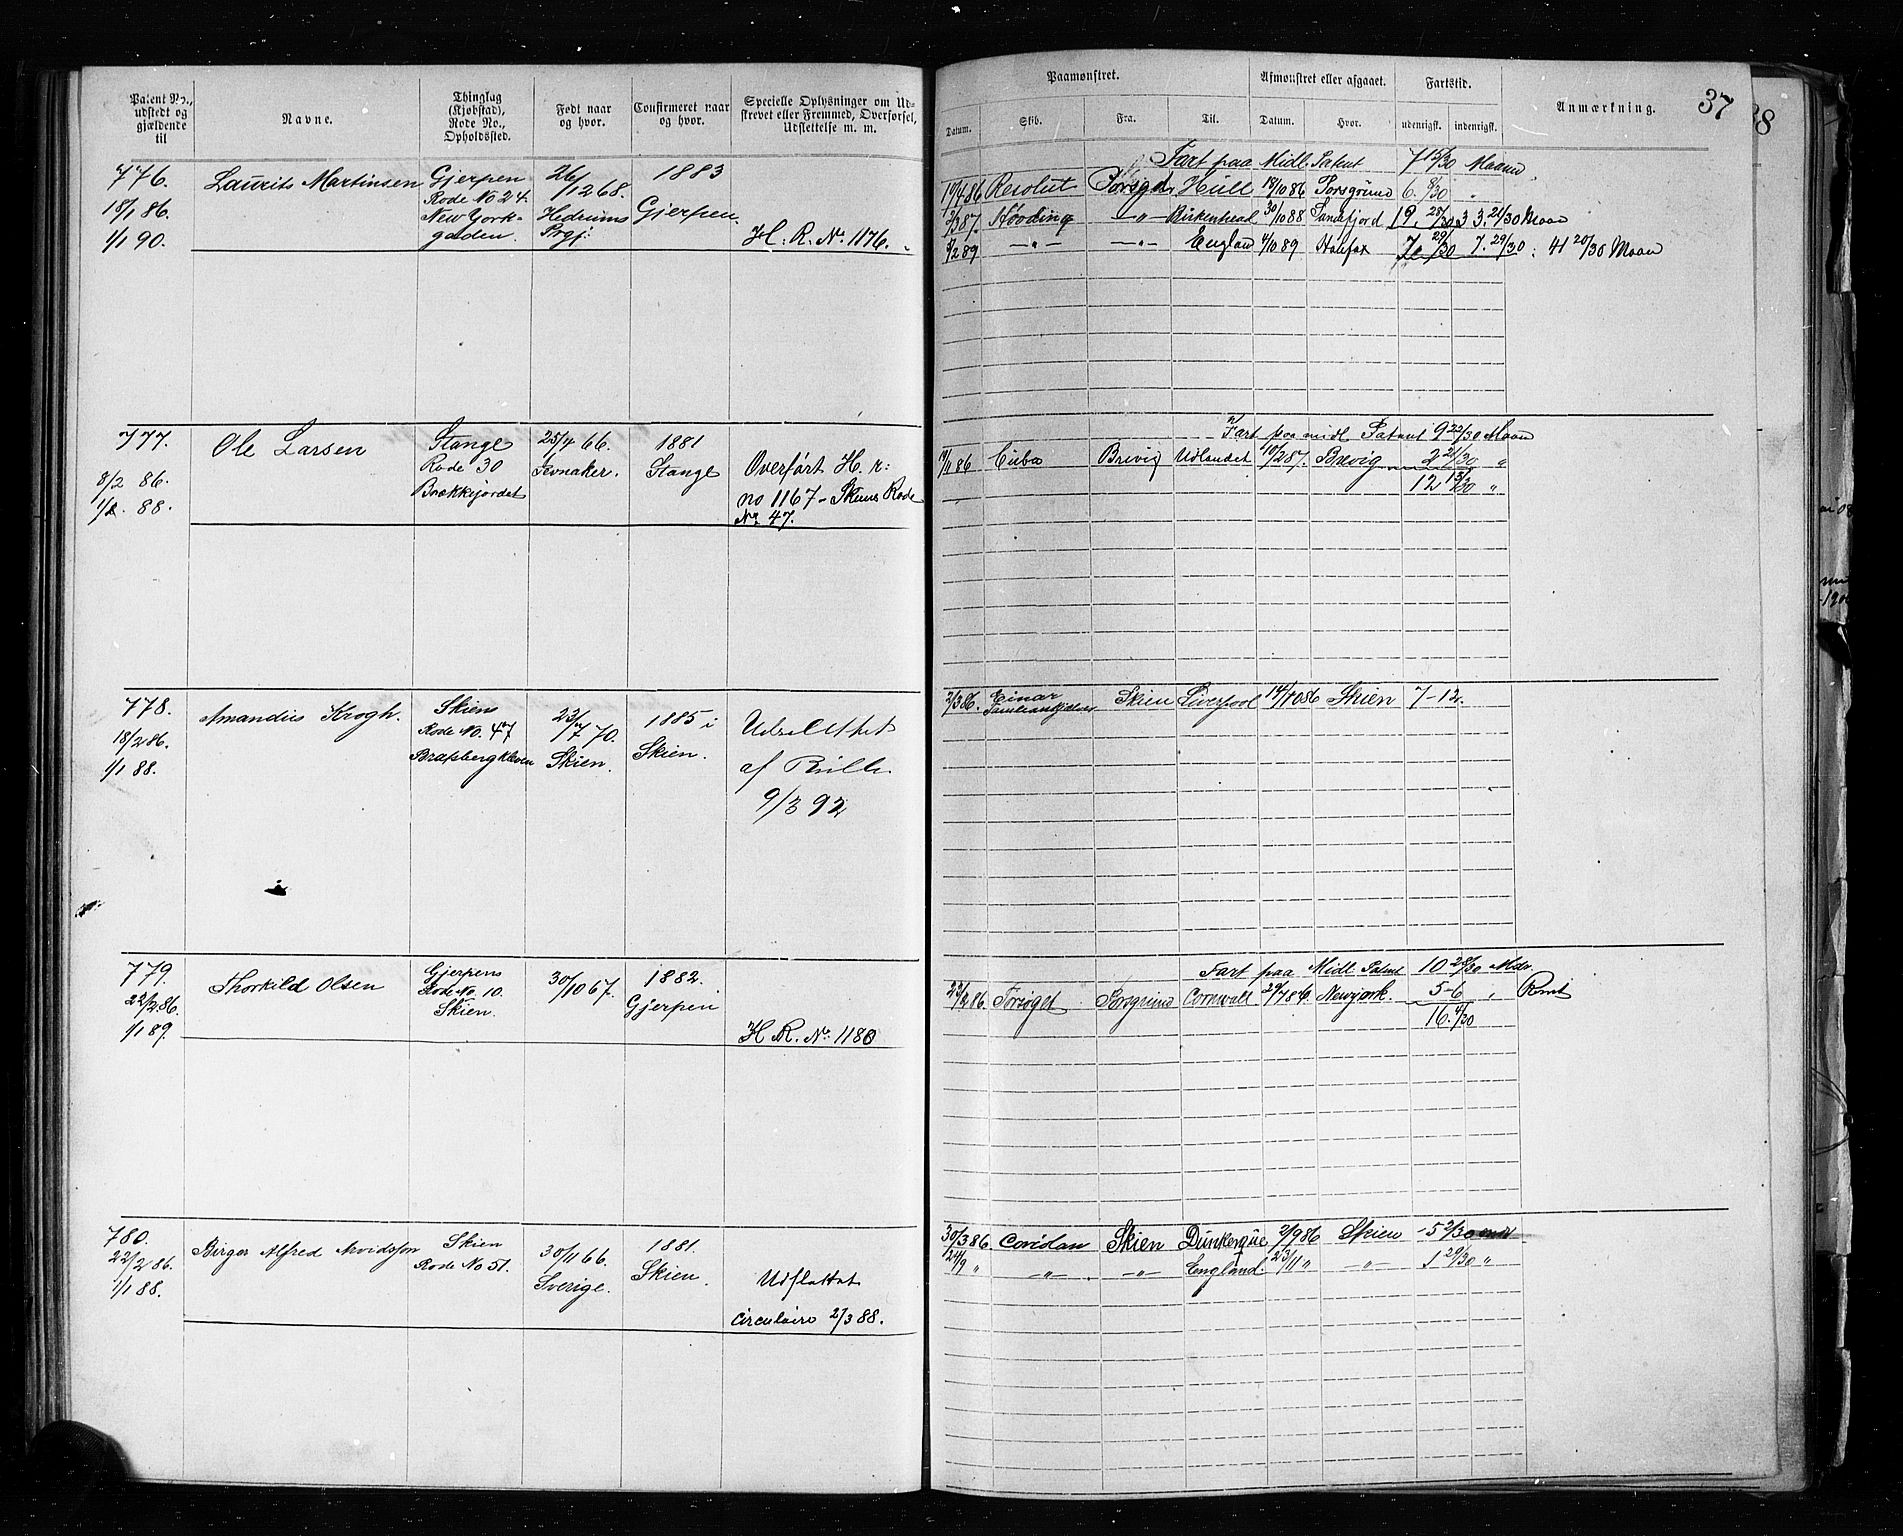 Patent No., udstedt og gjældende til
Navne.
Thinglag (Kjøbstad), Rode No., Opholdssted.
Født naar og hvor.
Confirmeret naar og hvor.
Specielle Oplysninger om Udskrevet eller Fremmed, Overførsel, Udslettelse m. m.
776.
18/1 86.
1/1 90.
Laurits Martinsen
Gjerpen
Rode No 24.
New York-
gaden.
26/12 68.
Hedrums
Prgj:
1883
Gjerpen.
H. R. No. 1176.
777.
8/2 86.
88.
Ole Larsen
Stange
Rode 30
Brekkejordet
25/4 66.
Jevnaker.
1881
Stange
Overført H. r:
no 1167 - Skiens Rode
No 47.
778.
18/2 86.
1/1 88.
Amandus Krogh.
Skiens
Rode No. 47
Bratsbergkleven
23/7 70.
Skien.
1885 i
Skien.
Udslettet
af Rulle
9/3 92
779.
22/2 86.
1/1 89.
Thorkild Olsen
Gjerpens
Rode No. 10.
Skien.
30/10 67.
1882.
Gjerpen
H. R. No. 1180
780.
22/2 86.
1/1 88.
Birger Alfred Arvidsson
Skien
Rode No 51.
30/11 66.
Sverige.
1881.
Skien.
Udflyttet
Circulaire 2/3 88.
37
38
Paamønstret.
Afmønstret eller afgaaet.
Fartstid.
Anmærkning.
Datum.
Skib.
Fra.
Til.
Datum.
Hvor.
udenrigsk.
indenrigsk.
Fart paa Midl. Patent 7 15/30 Maaned.
10/4 86 Resolut Porsgd. Hull 18/10 86 Porsgrund 6. 8/30 "
2/3 87. Høvding -"- Birkenhead 30/10 88 Sandefjord 19. 28/30 33. 21/30 Maan
4/2 89 -"- -"- England 4/10 89 Halifax 7. 29/30 7. 29/30 : 41 20/30 Maan
Fart paa midl Patent 9 22/30 Maan
86 Cuba Brevig Udlandet 10/2 87. Brevig 2 21/30 "
12 13/30 "
2/3 86. Einar Skien Liverpool 14/10 86 Skien 7-12.
Fart paa Midl. Patent 10 28/30 Mdr
23/2 86. Forsøget Porsgrund Cornwall 29/7 86. Newyork. 5-6 " Rømt
16. 4/30
30/3 86 Coridan Skien Dünkerque 2/9 86 Skien 5 2/30
24/9 " -"- -"- England. 23/11 " -"- 1 29/30 "